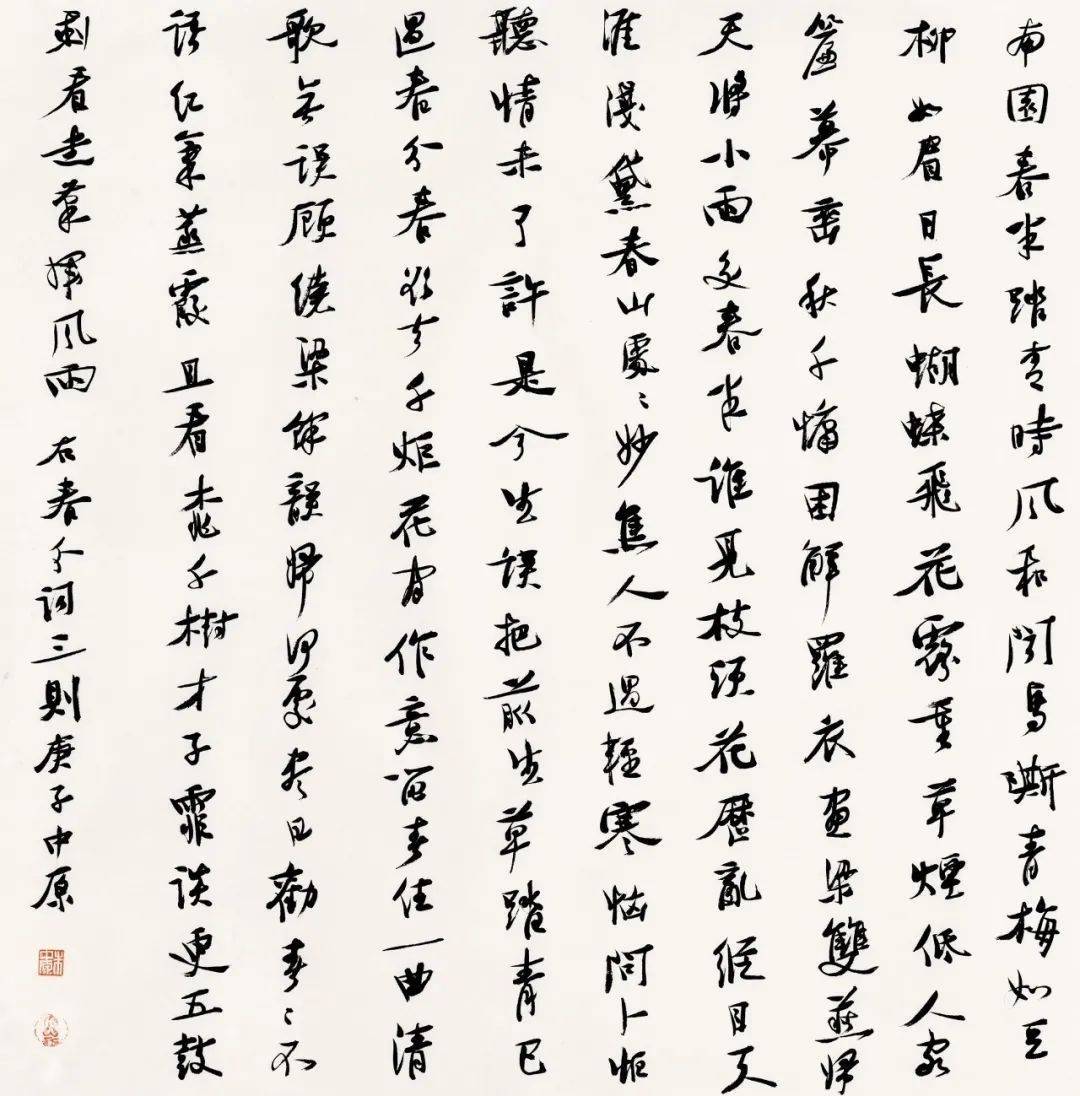 南園春半踏青時風和聞馬嘶青梅如豆
柳如眉日長蝴蝶飛花露重草煙低人家
簾幕垂秋千慵困解羅衣畫梁雙燕歸
天將小雨交春半誰見枝頭花歷亂縱目天
涯淺黛春山處〻紗焦人不過輕寒惱問卜怕
聽情未了許是今生誤把前生草踏青已
過春分春欲去千炬花間作意留春住一曲清
歌無誤顧繞梁餘韻歸何處盡日勸春〻不
語紅氣蒸霞且看桃千樹才子霏談更五鼓
剩看走筆揮風雨 右春分詞三則庚子中原